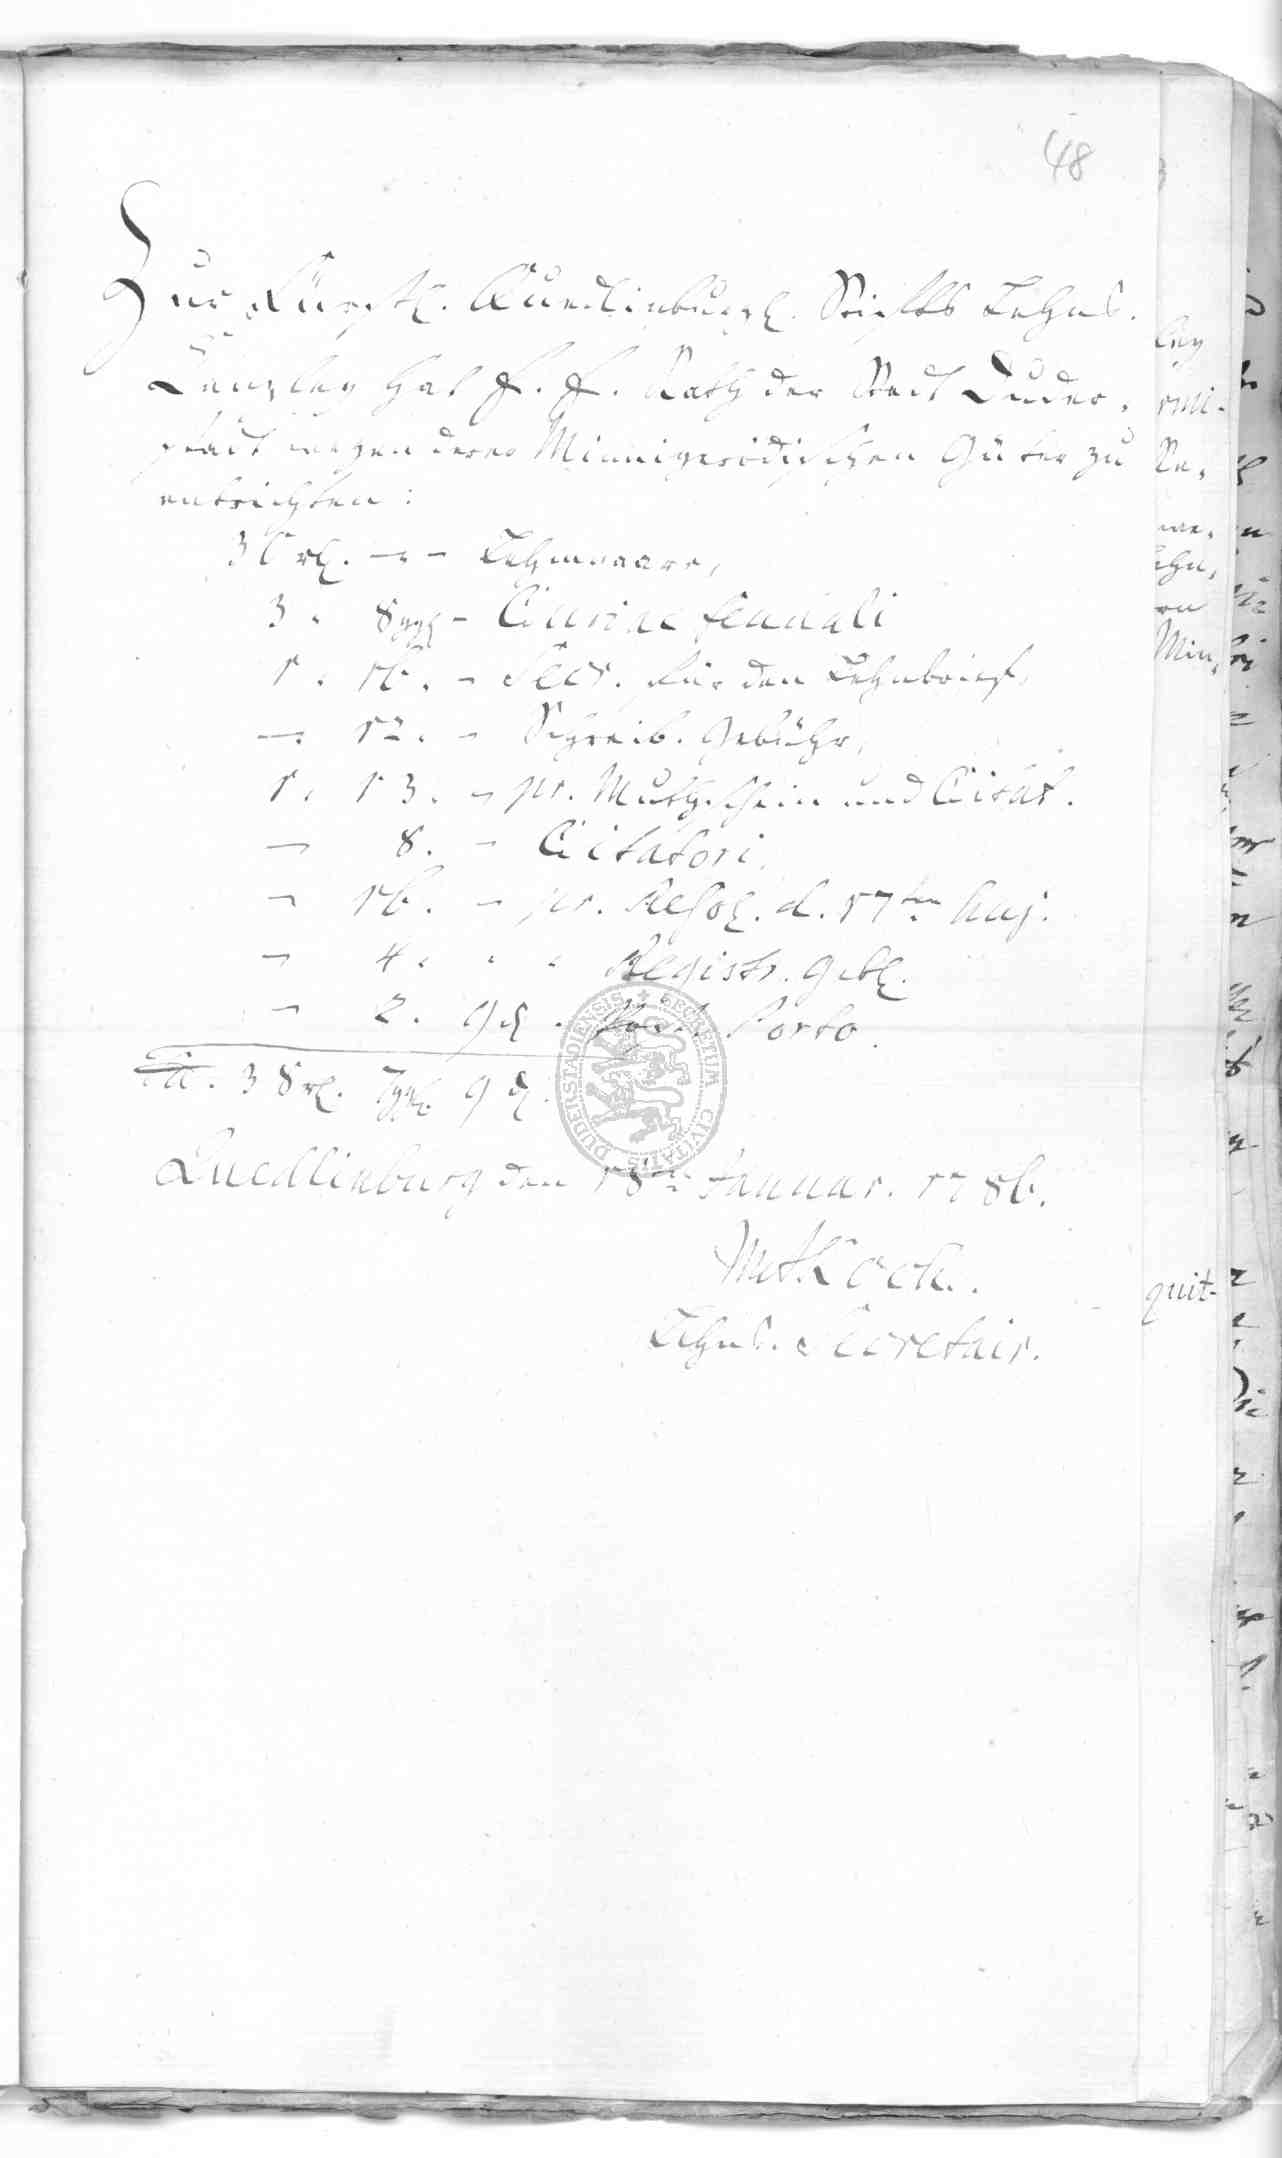 48
Zur Fürstl. Quedlinburgl. Stifts Lehns-
Canzley hat E. E. Rath der Stadt Duder-
stadt wegen derer Minnigerödischen Güter zu
entrichten:
30 rl. — — Lehnwaare,
3 . 8 ggl — Curiae feudali
1 . 16 . — Secr. für den Lehnbrief,
— . 12 . — Schreib. Gebühr,
1 . 13 . — pr. Muthschein und Citat.
— 8 . — Citatori,
— 16 . — pr. Resol. d. 17ten huj.
— 4 . . . Registr. gebl.
— 2 . 9 d . Porto.
Sa. 38 rl. 7 ggl. 9 d.
Quedlinburg den 18ten Januar. 1786.
Koch.
Lehns. Secretair.
SECRETUM CIVITATIS DUDERSTADIENSIS
ley
Min-
quit-